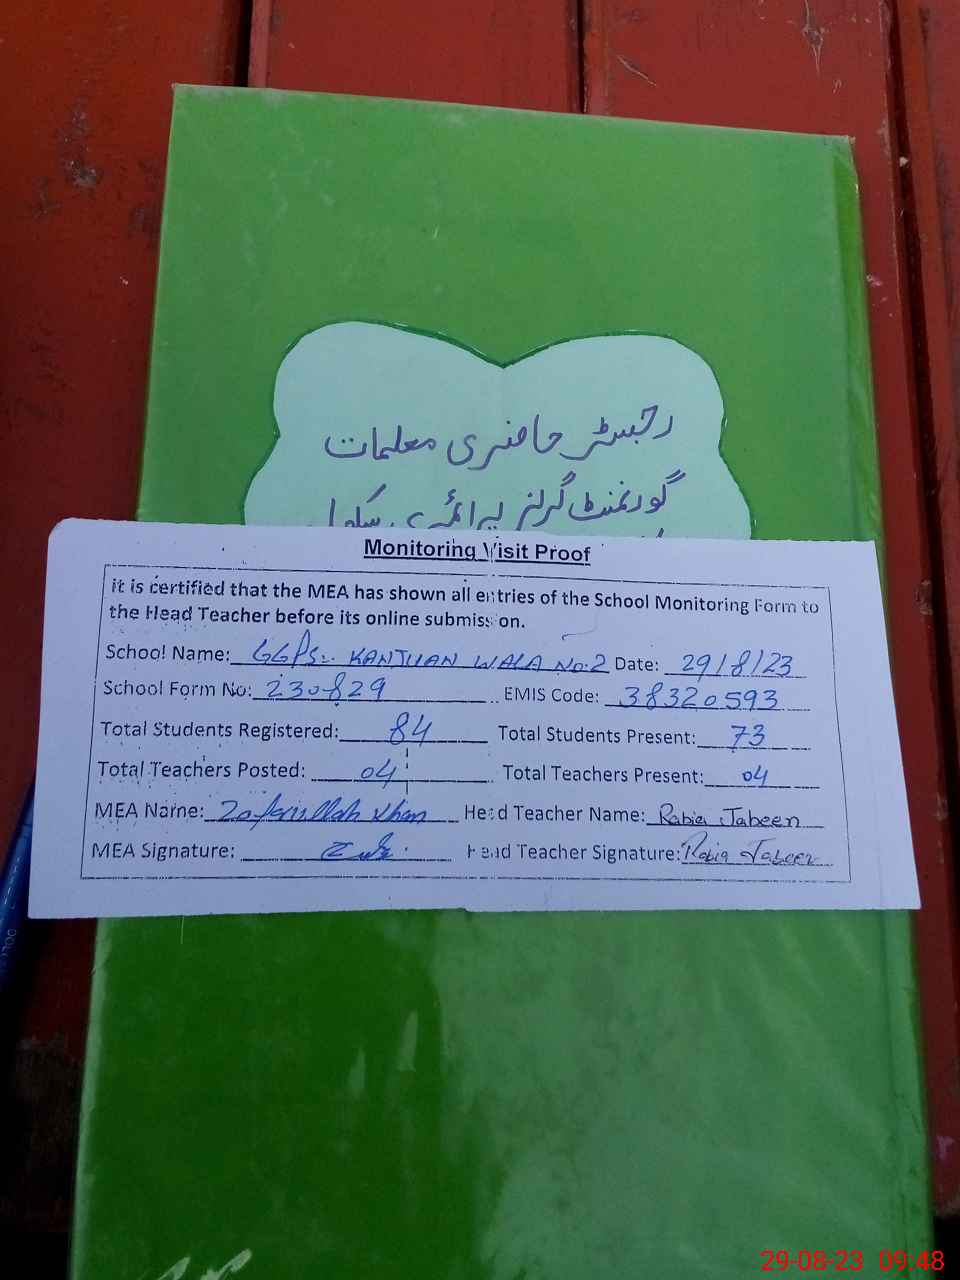 رجسٹر حاضری معلمات
گورنمنٹ گرلز پرائمری سکول
Monitoring Visit Proof
it is certified that the MEA has shown all entries of the School Monitoring Form to
the Head Teacher before its online submission.
School Name: GGPS:. KANJUAN WALA No:2 Date: 29/8/23
School Form No: 230829 EMIS Code: 38320593
Total Students Registered: 84 Total Students Present: 73
Total Teachers Posted: 04 Total Teachers Present: 04
MEA Name: Zafarullah Khan Head Teacher Name: Rabia Jabeen
MEA Signature: Head Teacher Signature: Rabia Jabeen
29-08-23 09:48